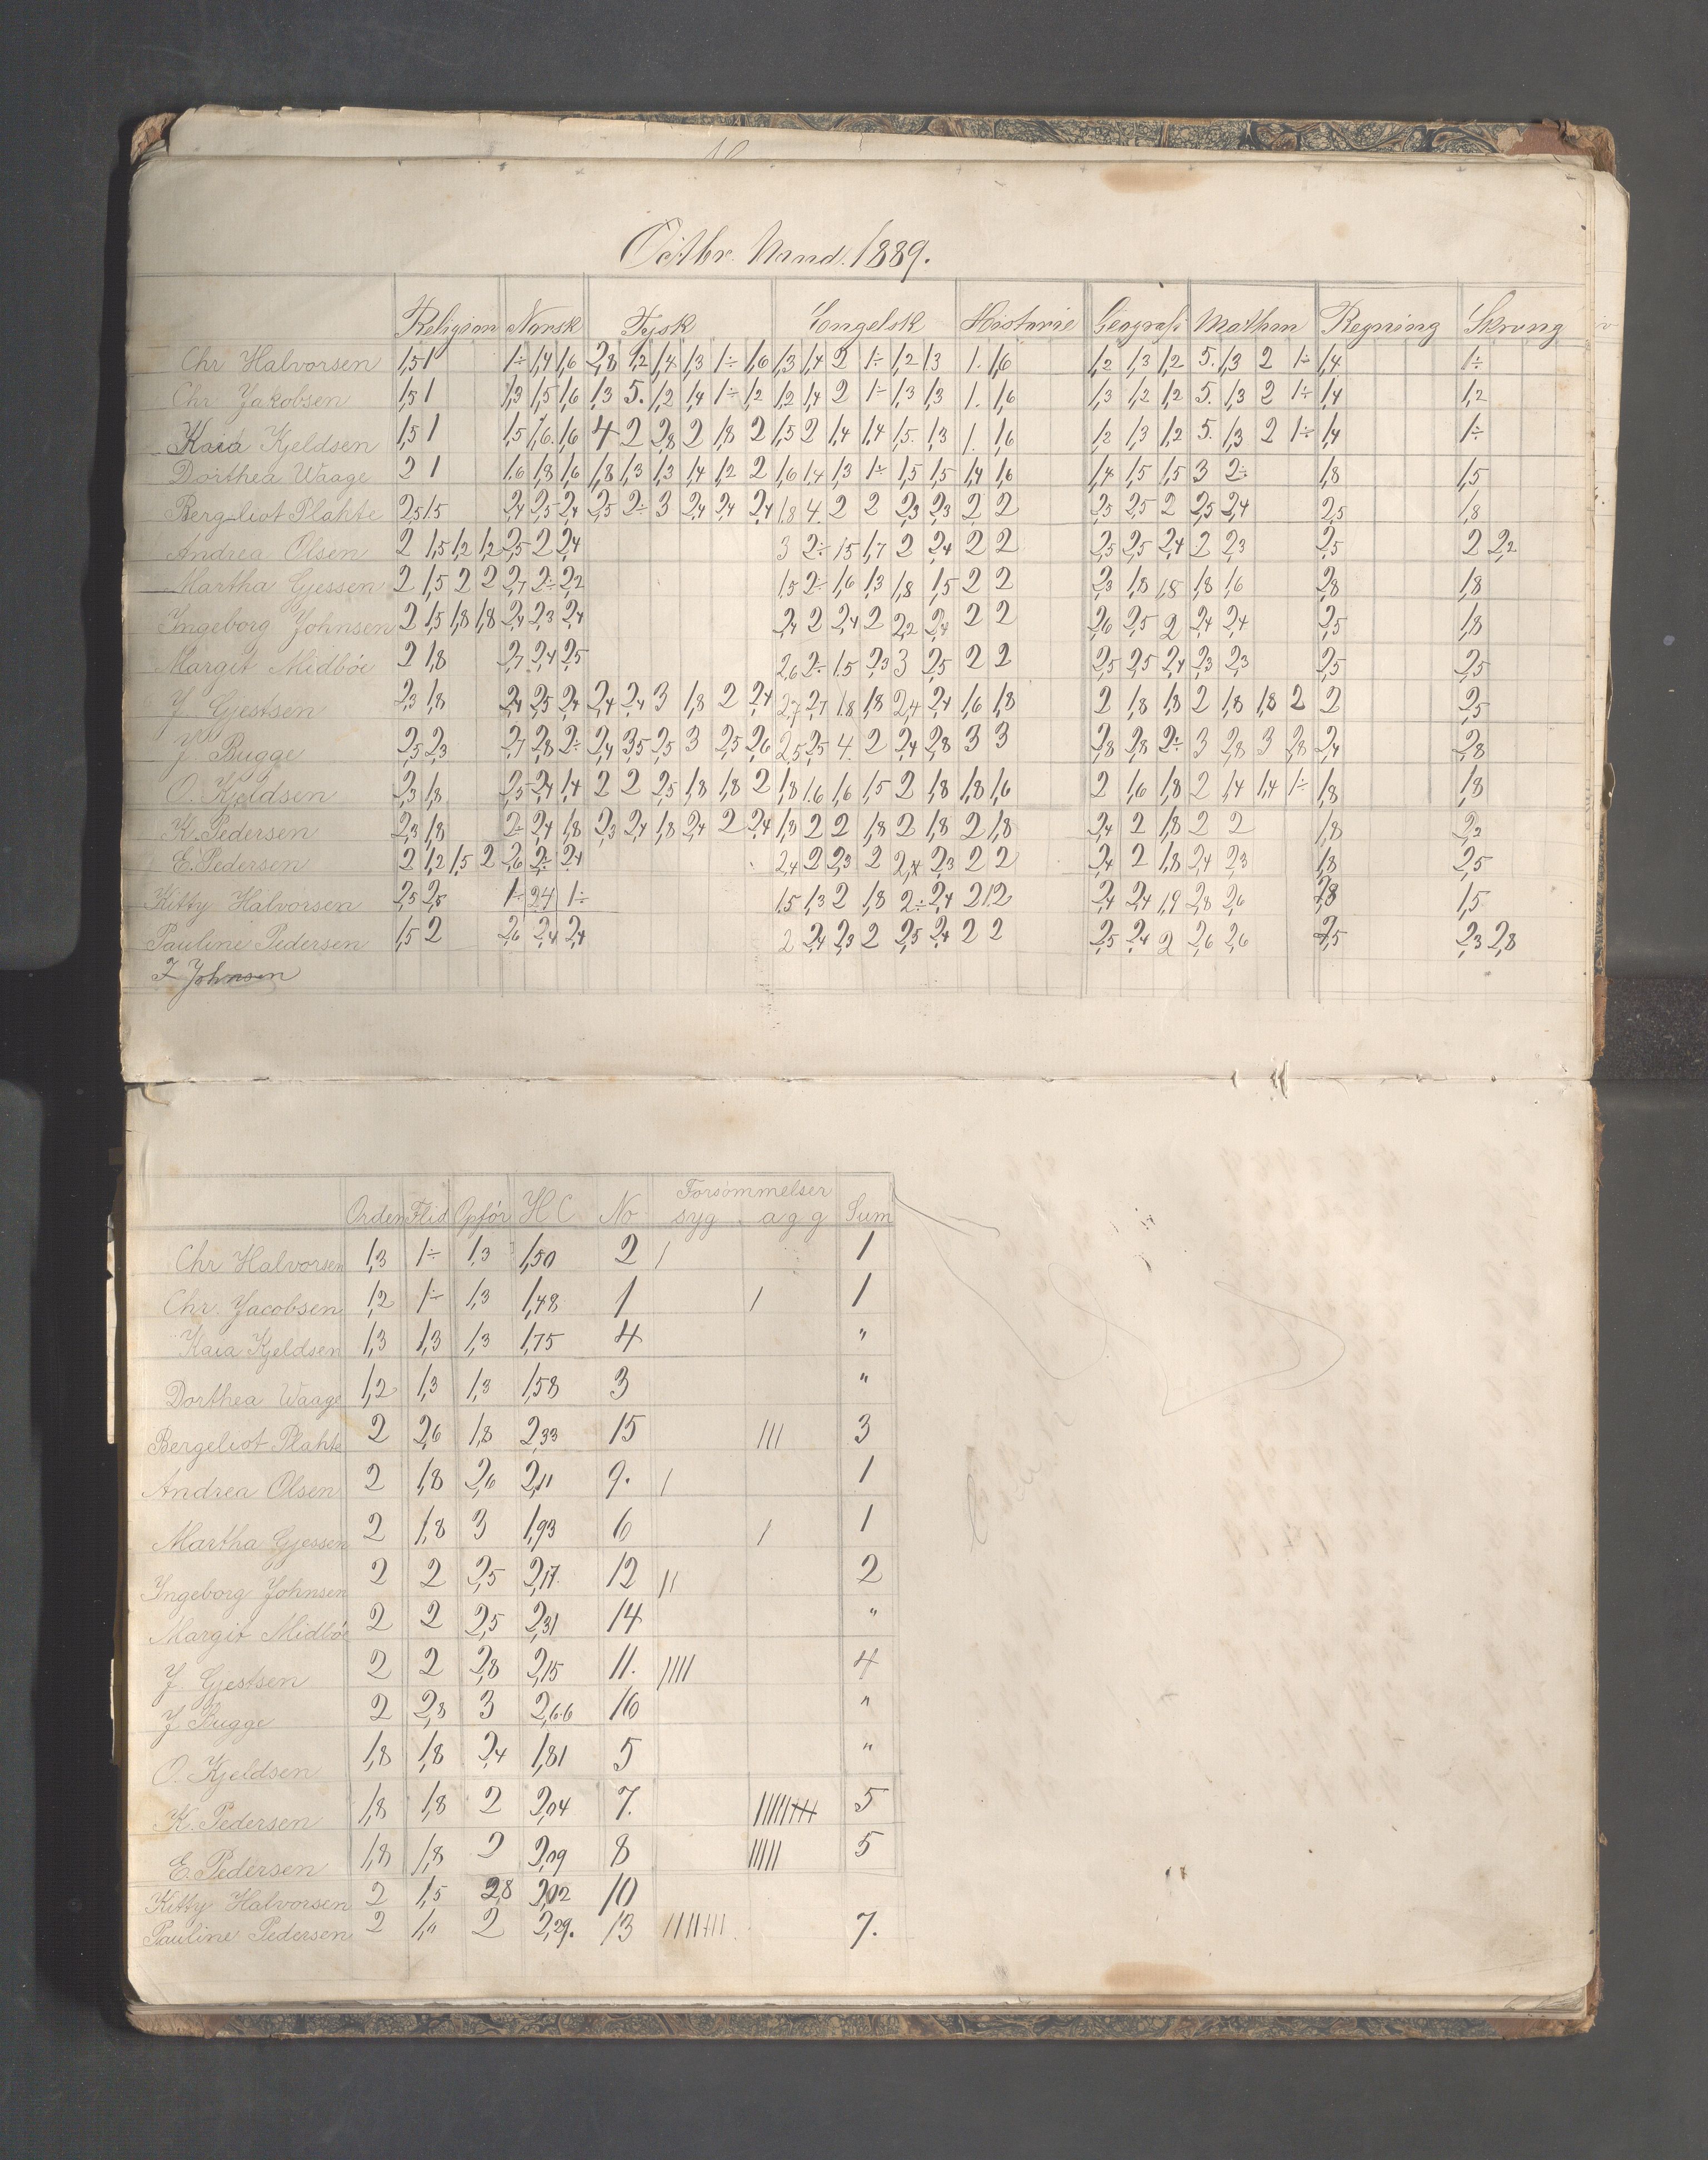 Octbr. Maaned. 1889.
Religion Norsk Tysk Engelsk Historie Geografi Mathm Regning Skrivng
Chr Halvorsen 1,5 1 1÷ 1,4 1,6 2,8 1,2 1,4 1,3 1÷ 1,6 1,3 1,4 2 1÷ 1,2 1,3 1. 1,6 1,2 1,3 1,2 5. 1,3 2 1÷ 1,4 1÷
Chr. Jakobsen 1,5 1 1,3 1,5 1,6 1,3 5. 1,2 1,4 1÷ 1,2 1,2 1,4 2 1÷ 1,3 1,3 1. 1,6 1,3 1,2 1,2 5. 1,3 2 1÷ 1,4 1,2
Kaia Kjeldsen 1,5 1 1,5 1,6 1,6 4 2 2,8 2 1,8 2 1,5 2 1,4 1,4 1,5 1,3 1. 1,6 1,2 1,3 1,2 5. 1,3 2 1÷ 1,4 1÷
Dorthea Waage 2 1 1,6 1,8 1,6 1,8 1,3 1,3 1,4 1,2 2 1,6 1,4 1,3 1÷ 1,5 1,5 1,4 1,6 1,4 1,5 1,5 3 2÷ 1,8 1,5
Bergliot Plahte 2,5 1,5 2,4 2,5 2,4 2,5 2÷ 3 2,4 2,4 2,4 1,8 4. 2 2 2,3 2,3 2 2 2,5 2,5 2 2,5 2,4 2,5 1,8
Andrea Olsen 2 1,5 1,2 1,2 2,5 2 2,4 3 2÷ 1,5 1,7 2 2,4 2 2 2,5 2,5 2,4 2 2,3 2,5 2 2,2
Martha Gjessen 2 1,5 2 2 2,7 2÷ 2,2 1,5 2÷ 1,6 1,3 1,8 1,5 2 2 2,3 1,8 1,8 1,8 1,6 2,8 1,8
Ingeborg Johnsen 2 1,5 1,8 1,8 2,4 2,3 2,4 2,4 2 2,4 2 2,2 2,4 2 2 2,6 2,5 2 2,4 2,4 2,5 1,8
Margit Midböe 2 1,8 2,7 2,4 2,5 2,6 2÷ 1,5 2,3 3 2,5 2 2 2,5 2,5 2,4 2,3 2,3 2,5 2,5
J. Gjestsen 2,3 1,8 2,4 2,5 2,4 2,4 2,4 3 1,8 2 2,4 2,7 2,7 1,8 1,8 2,4 2,4 1,6 1,8 2 1,8 1,8 2 1,8 1,8 2 2 2,5
J. Bugge 2,5 2,3 2,7 2,8 2÷ 2,4 3,5 2,5 3 2,5 2,6 2,5 2,5 4. 2 2,4 2,8 3 3 2,8 2,8 2÷ 3 2,8 3 2,8 2,4 2,8
O. Kjeldsen 2,3 1,8 2,5 2,4 1,4 2 2 2,5 1,8 1,8 2 1,8 1,6 1,6 1,5 2 1,8 1,8 1,6 2 1,6 1,8 2 1,4 1,4 1÷ 1,8 1,8
K. Pedersen 2,3 1,8 2÷ 2,4 1,8 2,3 2,4 1,8 2,4 2 2,4 1,8 2 2 1,8 2 1,8 2 1,8 2,4 2 1,8 2 2 1,8 2,2
E. Pedersen 2 1,2 1,5 2 2,6 2÷ 2,4 2,4 2 2,3 2 2,4 2,3 2 2 2,4 2 1,8 2,4 2,3 1,8 2,5
Kitty Halvorsen 2,5 2,5 1÷ 2,4 1÷ 1,5 1,3 2 1,8 2÷ 2,4 2 1,2 2,4 2,4 1,9 2,8 2,6 2,8 1,5
Pauline Pedersen 1,5 2 2,6 2,4 2,4 2 2,4 2,3 2 2,5 2,4 2 2 2,5 2,4 2 2,6 2,6 2,5 2,3 2,8
I Johnsen
Forsömmelser
Orden Flid Opför H C No syg a g g Sum
Chr Halvorsen 1,3 1÷ 1,3 1,50 2 / 1
Chr. Jacobsen 1,2 1÷ 1,3 1,48 1 / 1
Kaia Kjeldsen 1,3 1,3 1,3 1,75 4 "
Dorthea Waage 1,2 1,3 1,3 1,58 3 "
Bergeliot Plahte 2 2,6 1,8 2,33 15 /// 3
Andrea Olsen 2 1,8 2,6 2,11 9. / 1
Martha Gjessen 2 1,8 3 1,93 6 / 1
Ingeborg Johnsen 2 2 2,5 2,17 12 // 2
Margit Midböe 2 2 2,5 2,31 14 "
J. Gjestsen 2 2 2,8 2,15 11. //// 4
J Bugge 2 2,8 3 2,66 16 "
O. Kjeldsen 1,8 1,8 2,4 1,81 5 "
K. Pedersen 1,8 1,8 2 2,04 7. //////// 5
E. Pedersen 1,8 1,8 2 2,09 8 ///// 5
Kitty Halvorsen 2 1,5 2,8 2,02 10
Pauline Pedersen 2 1," 2 2,29. 13 /////// 7.